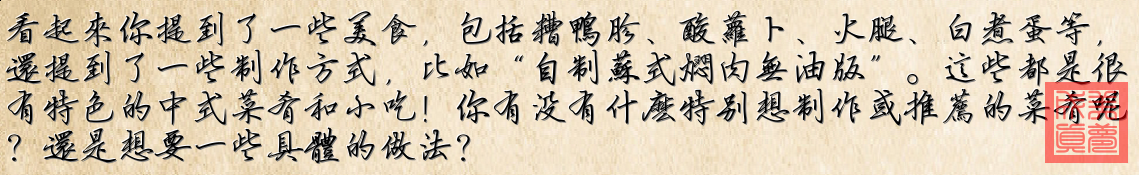 看起來你提到了一些美食，包括糟鴨胗、酸蘿卜、火腿、白煮蛋等，
還提到了一些制作方式，比如“自制蘇式燜肉無油版”。這些都是很
有特色的中式菜肴和小吃！你有没有什麽特别想制作或推薦的菜肴呢
？還是想要一些具體的做法？